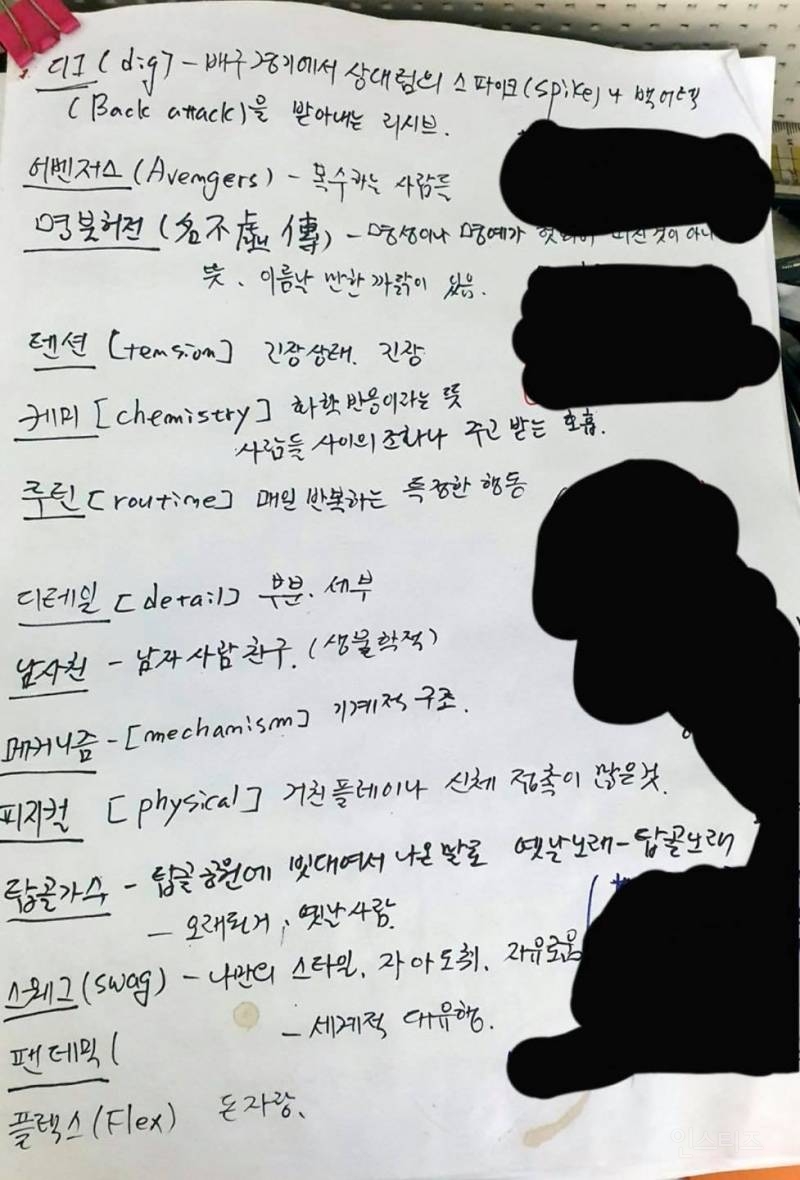 디그 (dig) - 배구경기에서 상대팀의 스파이크(spike)나 백어택
(Back attack)을 받아내는 리시브.
어벤저스 (Avengers) - 복수하는 사람들
명불허전 (名不虛傳) - 명성이나 명예가 것이 아니
뜻. 이름날 만한 까닭이 있음.
텐션 [tension] 긴장상태. 긴장
케미 [chemistry] 화학반응이라는 뜻
사람들 사이의 조화나 주고 받는 호흡.
루틴 [routine] 매일 반복하는 특정한 행동
디테일 [detail] 부분. 세부
남사친 - 남자사람친구. (생물학적)
메커니즘 - [mechanism] 기계적 구조.
피지컬 [physical] 거친플레이나 신체 접촉이 많은것.
탑골가수 - 탑골공원에 빗대여서 나온말로 옛날노래-탑골노래
- 오래되거, 옛날사람.
스웨그 (swag) - 나만의 스타일, 자아도취, 자유로움
팬데믹 ( - 세계적 대유행.
플렉스 (Flex) 돈자랑.
인스티즈